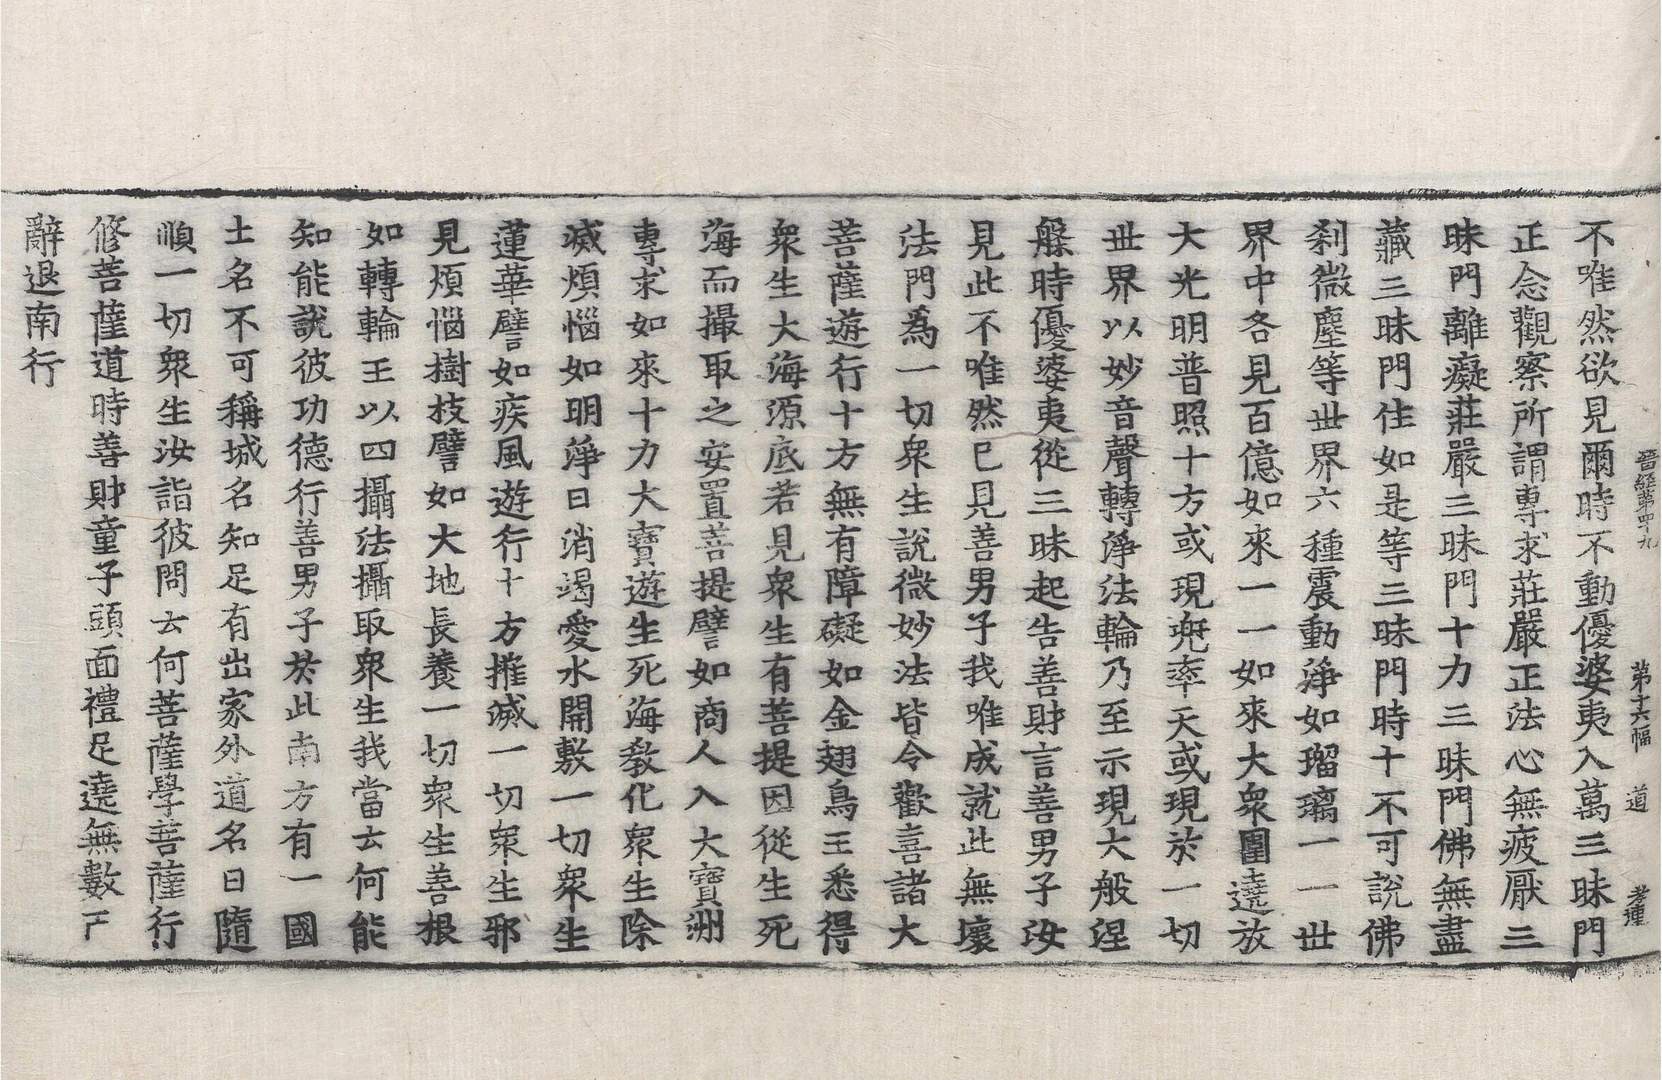 晉經第四十九 第十六幅 道
不唯然欲見爾時不動優婆夷入萬三昧門
正念觀察所謂專求莊嚴正法心無疲厭三
昧門離癡莊嚴三昧門十力三昧門佛無盡
藏三昧門住如是等三昧門時十不可說佛
刹微塵等世界六種震動淨如瑠璃一一世
界中各見百億如來一一如來大衆圍遶放
大光明普照十方或現兜率天或現於一切
世界以妙音聲轉淨法輪乃至示現大般涅
槃時優婆夷從三昧起告善財言善男子汝
見此不唯然已見善男子我唯成就此無壞
法門為一切衆生說微妙法皆令歡喜諸大
菩薩遊行十方無有障礙如金翅鳥王悉得
衆生大海源底若見衆生有菩提因從生死
海而撮取之安置菩提譬如商人入大寶洲
專求如來十力大寶遊生死海教化衆生除
滅煩惱如明淨日消竭愛水開敷一切衆生
蓮華譬如疾風遊行十方摧滅一切衆生邪
見煩惱樹枝譬如大地長養一切衆生善根
如轉輪王以四攝法攝取衆生我當云何能
知能說彼功德行善男子於此南方有一國
土名不可稱城名知足有出家外道名曰隨
順一切衆生汝詣彼問云何菩薩學菩薩行
修菩薩道時善財童子頭面禮足遶無數帀
辭退南行